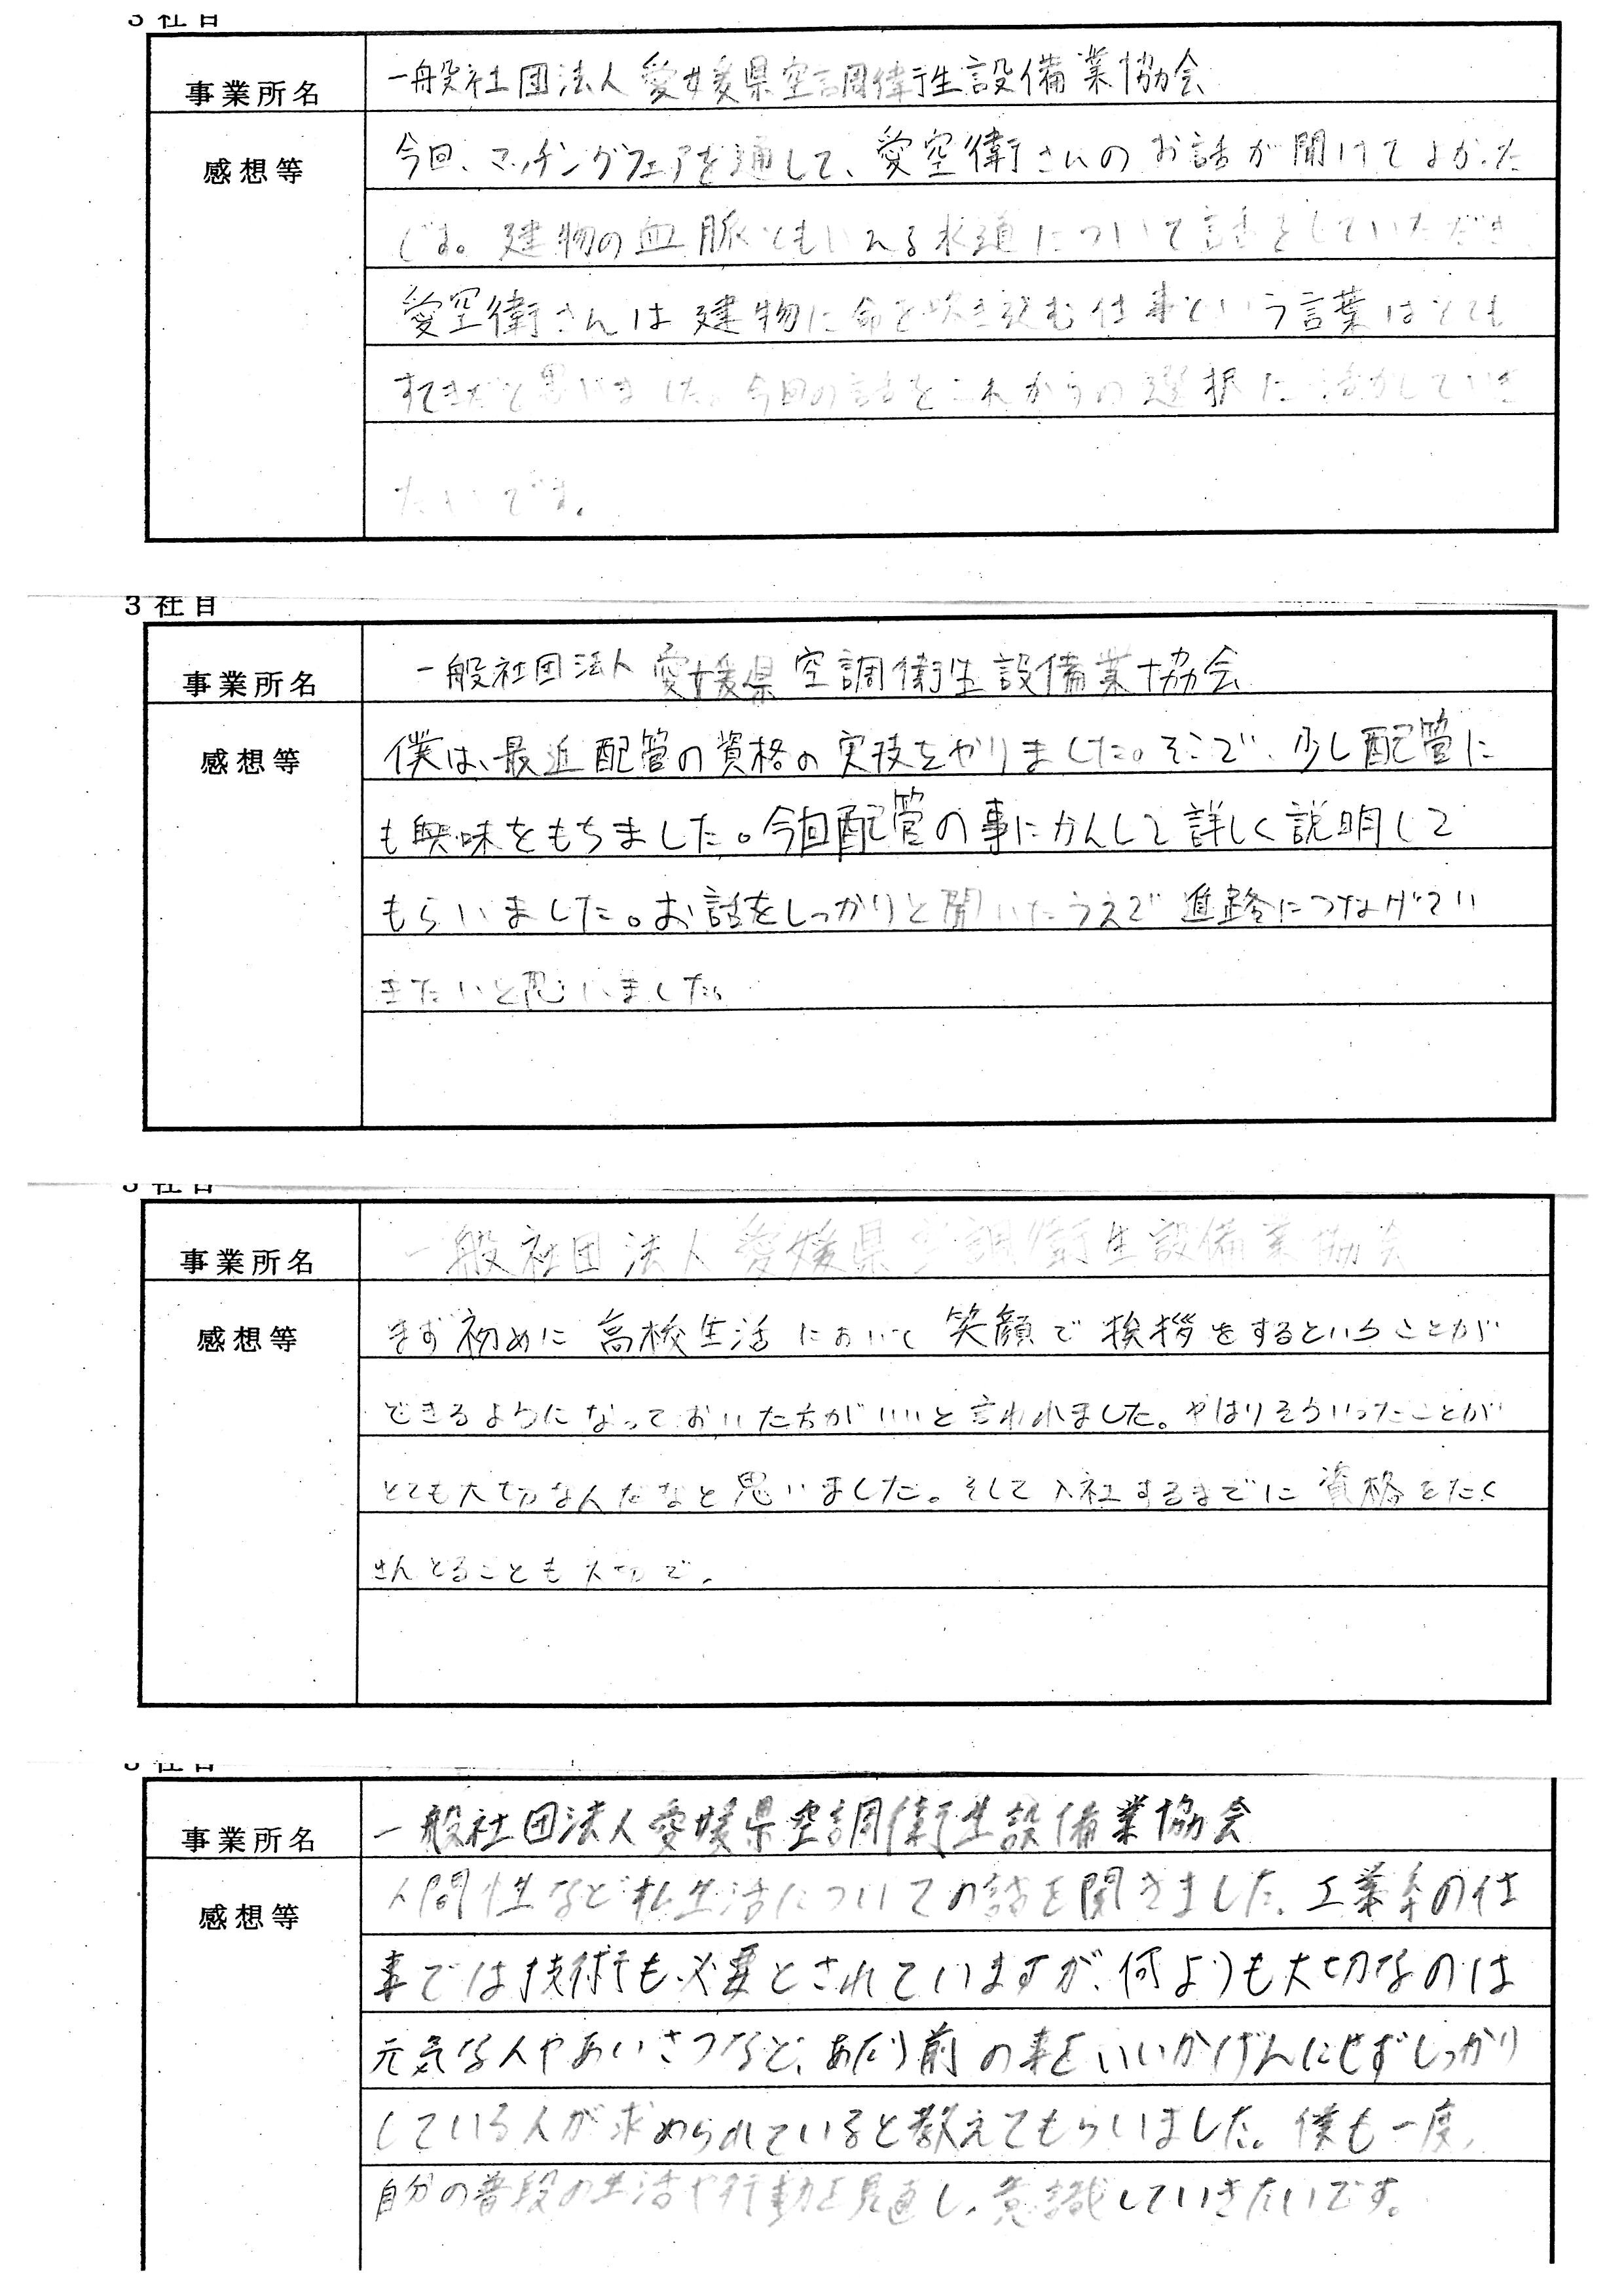 3 社目
事業所名
一般社団法人 愛媛県空調衛生設備業協会
感想等
今回、マッチングフェアを通して、愛空衛さんのお話が聞けてよかった
です。建物の血脈ともいえる水道について話をしていただき
愛空衛さんは建物に命を吹き込む仕事という言葉はとても
すてきだと思いました。今回の話をこれからの選択に活かしていき
たいです。
3 社目
事業所名
一般社団法人 愛媛県 空調衛生設備業協会
感想等
僕は、最近配管の資格の実技をやりました。そこで、少し配管に
も興味をもちました。今回配管の事にかんして詳しく説明して
もらいました。お話をしっかりと聞いたうえで進路につなげてい
きたいと思いました。
3 社目
事業所名
一般社団法人 愛媛県空調衛生設備業協会
感想等
まず初めに 高校生活において 笑顔で 挨拶をするということが
できるようになっておいた方がいいと言われました。やはりそういったことが
とても大切なんだなと思いました。そして入社するまでに資格をたく
さんとることも大切で。
3 社目
事業所名
一般社団法人愛媛県空調衛生設備業協会
感想等
人間性など私生活についての話を聞きました。工業系の仕
事では技術も必要とされていますが、何よりも大切なのは
元気な人やあいさつなど、あたり前の事をいいかげんにせずしっかり
している人が求められていると教えてもらいました。僕も一度、
自分の普段の生活や行動を見直し、意識していきたいです。